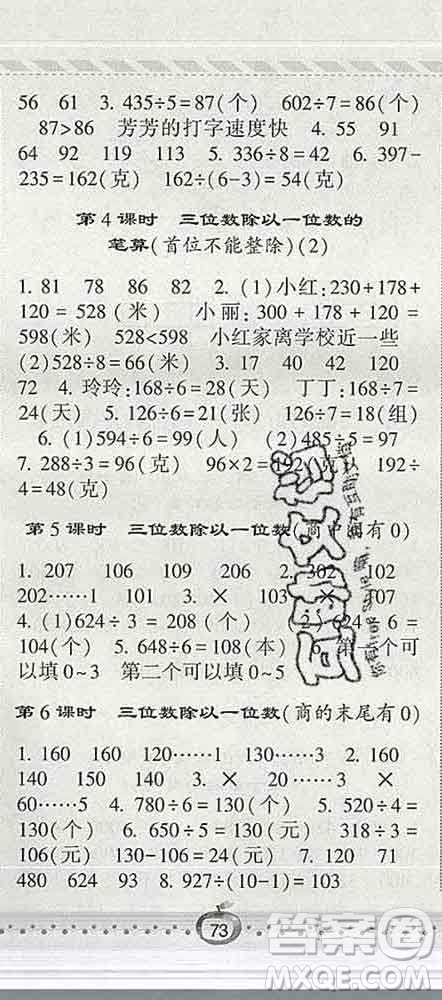 56 61 3. 435÷5=87(个) 602÷7=86(个)
87>86 芳芳的打字速度快 4. 55 91
64 92 119 113 5. 336÷8=42 6. 397-
235=162(克) 162÷(6-3)=54(克)
第4课时 三位数除以一位数的
笔算(首位不能整除)(2)
1. 81 78 86 82 2. (1)小红:230+178+
120=528(米) 小丽:300+178+120=
598(米) 528<598 小红家离学校近一些
(2)528÷8=66(米) 3. 17 40 42 120
72 4. 玲玲:168÷6=28(天) 丁丁:168÷7=
24(天) 5. 126÷6=21(张) 126÷7=18(组)
6. (1)594÷6=99(人) (2)485÷5=97
7. 288÷3=96(克) 96×2=192(克) 192÷
4=48(克)
第5课时 三位数除以一位数(商中间有0)
1. 207 106 109 206 2. 302 102
202……1 101 3. × 103 × 107
4. (1)624÷3=208(个) (2)624÷6=
104(个) 5. 648÷6=108(本) 6. 第一个可
以填0~3 第二个可以填0~5
第6课时 三位数除以一位数(商的末尾有0)
1. 160 160 120……1 130……3 2. 160
140 150 140 3. × 20……3 ×
60……5 4. 780÷6=130(个) 5. 520÷4=
130(个) 6. 650÷5=130(元) 318÷3=
106(元) 130-106=24(元) 7. 120 71
480 624 93 8. 927÷(10-1)=103
73
答案圈
MXQE.COM